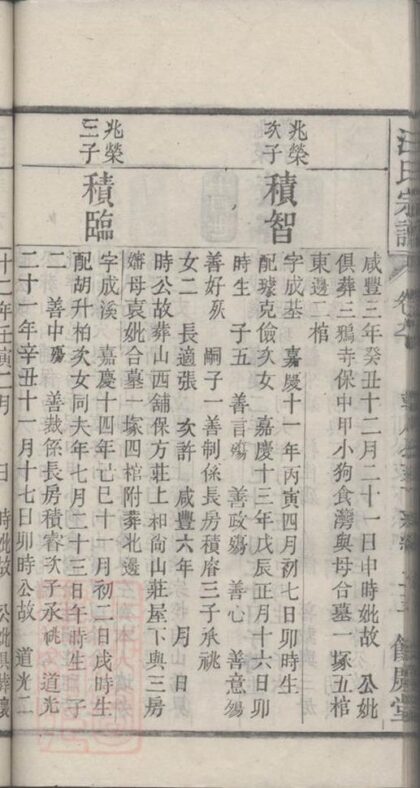 汪氏宗譜
餘慶堂
咸豐三年癸丑十二月二十一日申時妣故 公妣
俱葬三鴉寺保中甲小狗食灣與母合墓一塚五棺
東邊二棺
兆榮
次子
積智
字成基 嘉慶十一年丙寅四月初七日卯時生
配璩克儉次女 嘉慶十三年戊辰正月十六日卯
時生 子五 善言殤 善政殤 善心 善意殤
善好殀 嗣子一善制係長房積睿三子承祧
女二 長適張 次許 咸豐六年 月 日
時公故葬山西舖保方莊上和尚山莊屋下與三房
嬸母袁妣合墓一塚四棺附葬北邊
兆榮
三子
積臨
字成溪 嘉慶十四年己巳十一月初二日戌時生
配胡升柏次女同夫年七月二十三日午時生 子
二 善中殤 善蕆係長房積睿次子承祧 道光
二十一年辛丑十一月十七日卯時公故 道光二
十二年壬寅二月 日 時妣故 公妣俱葬